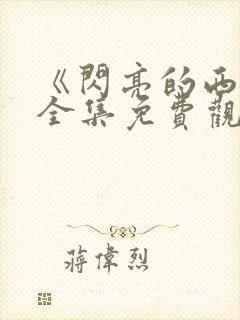 《閃亮的西
全集免費觀
蔣偉烈